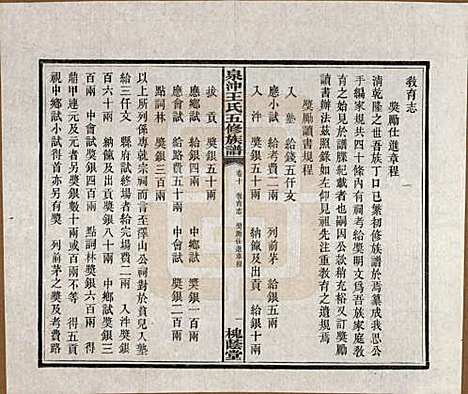 教育志
獎勵仕進章程
清乾隆之世吾族丁口已繁初修族譜於焉纂成我思公
手編家規共四十條內有一條有祠考給獎明文爲吾族家庭教
育之始於譜牒紀載者也嗣因公款稍充裕又訂獎勵
讀書辦法茲照錄如左仰見祖先注重教育之遺規焉
獎勵讀書規程
入塾 給錢五仟文
小試 給考費二兩 列前茅 給銀五兩
入泮 獎銀五十兩 納餼及出貢 給銀十兩
拔貢 獎銀五十兩
應鄉試 給考費二十兩 中鄉試 獎銀一百兩
應會試 給路費五十兩 中會試 獎銀二百兩
點詞林 獎銀五百兩
以上所列係專就宗祠而言至澤山公祠對於貧兒入塾
給三仟文 縣府試終場者給完場費二兩 入泮獎銀
百六十兩 納餼及出貢獎銀八十兩 中鄉試獎銀二
百兩 中會試獎銀四百兩 點詞林獎銀六百兩 三
鼎甲連元及元者另獎銀數十兩或百兩不等 得五貢
視中鄉試小試得首者亦有獎 列前茅之獎及考費路
泉沖王氏五修族譜
卷十 教育志 獎勵仕進章程
一
槐蔭堂